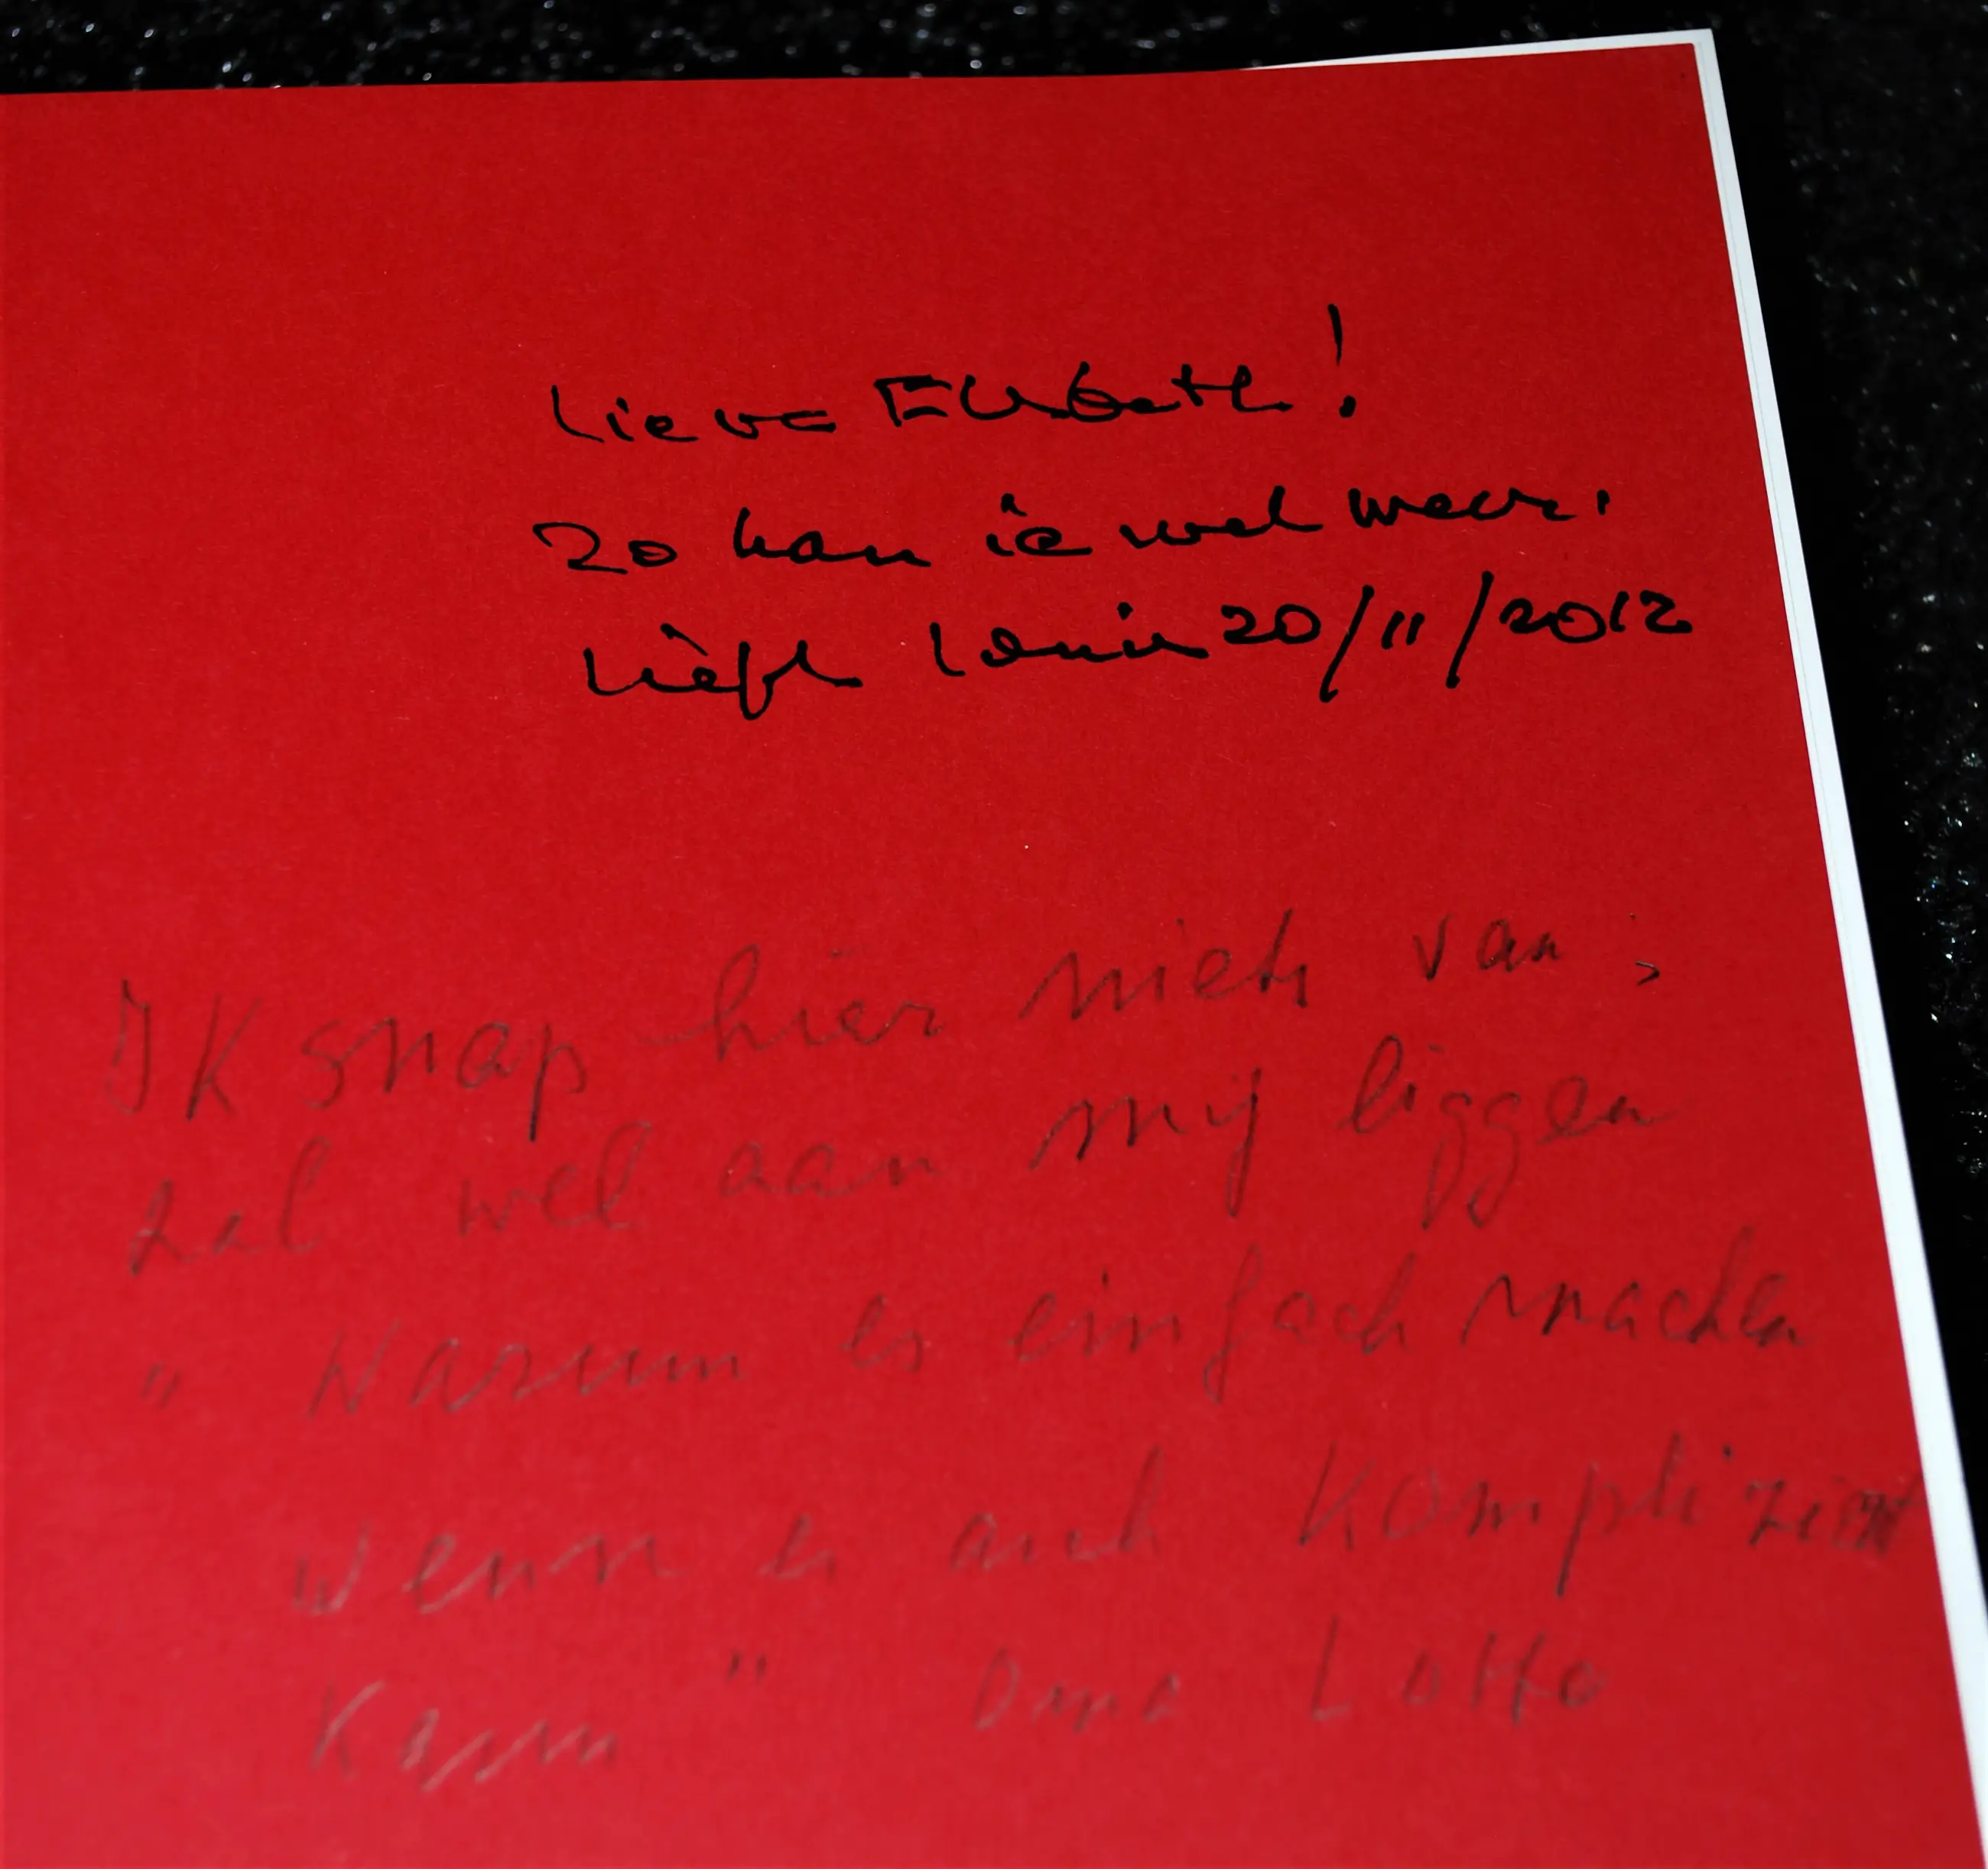 Lieve Elsbeth!
zo kan ie wel weer.
Liefs Louis 20/11/2012
IK snap hier niets van,
zal wel aan mij liggen
" Warum es einfach machen
wenn es auch Komplizert
Kann " Oma Lotte